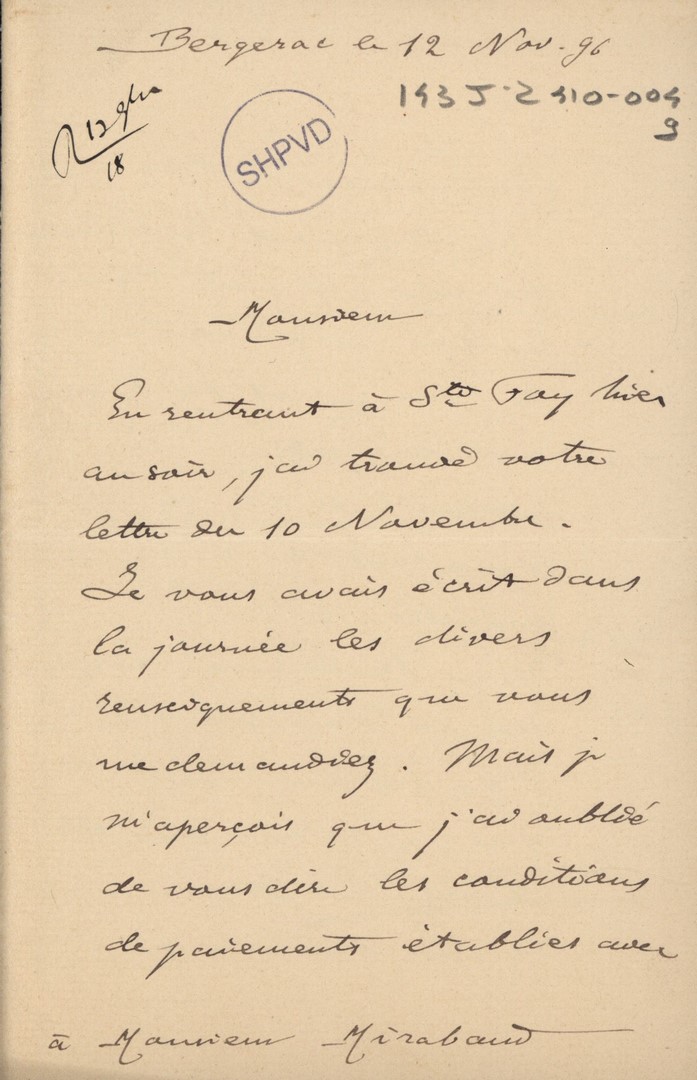 Bergerac le 12 Nov. 96
193 J-2 410-004
9
SHPVD
18
Monsieur
En rentrant à Ste Foy hier
au soir, j'ai trouvé votre
lettre du 10 Novembre.
Je vous avais écrit dans
la journée les divers
renseignements que vous
me demandiez. Mais je
m'aperçois que j'ai oublié
de vous dire les conditions
de paiements établies avec
à Monsieur Mirabaud